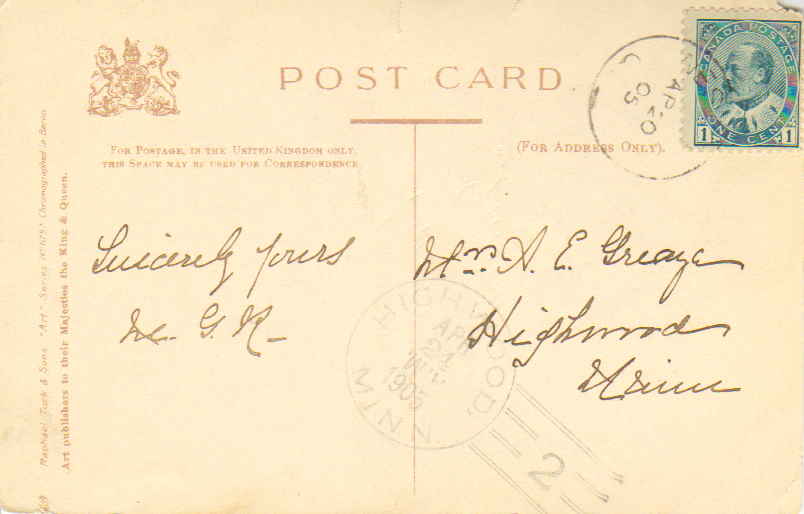 POST CARD.
FOR POSTAGE, IN THE UNITED KINGDOM ONLY,
THIS SPACE MAY BE USED FOR CORRESPONDENCE
(FOR ADDRESS ONLY).
CANADA POSTAGE
1 ONE CENT 1
AP 20
05
Sincerely Yours
Mr. A. E.
Highwood
Minn
HIGHWOOD, MINN
APR
1905
2
Raphael Tuck & Sons "Art" Series Chromographed in Berlin
Art publishers to their Majesties the King & Queen.